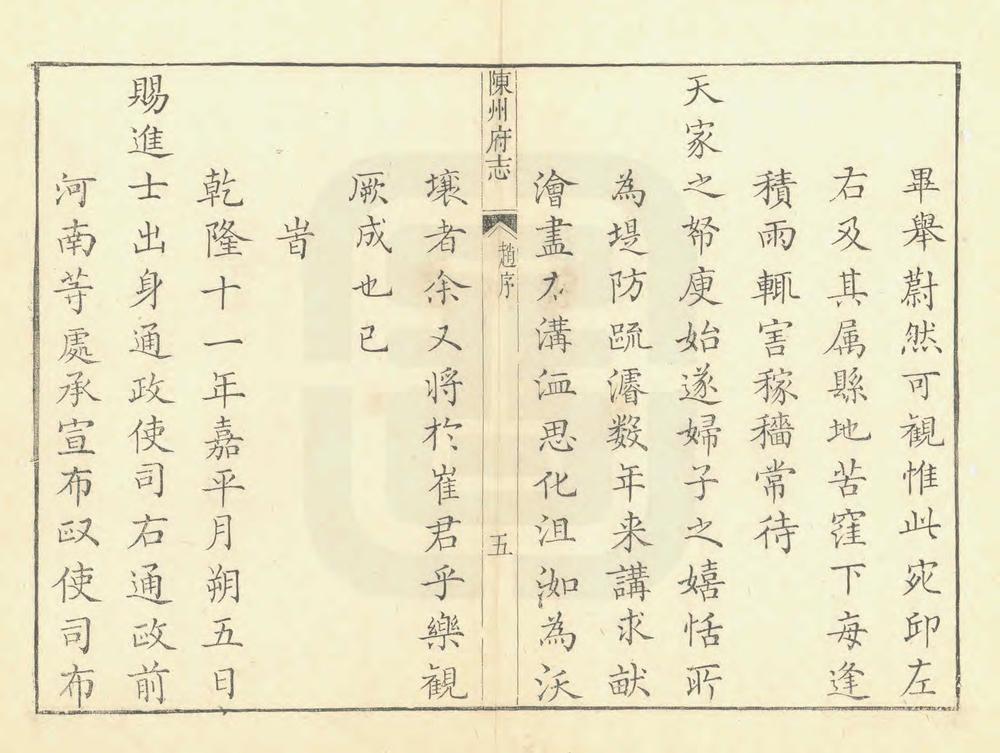 畢舉蔚然可觀惟此宛邱左
右及其属縣地苦窪下每逢
積雨輒害稼穡常待
天家之帑庾始遂婦子之嬉恬所
為堤防疏濬数年来講求畎
澮盡力溝洫思化沮洳為沃
陳州府志
趙序
五
壤者余又将於崔君乎樂觀
厥成也已
旹
乾隆十一年嘉平月朔五日
賜進士出身通政使司右通政前
河南等處承宣布政使司布